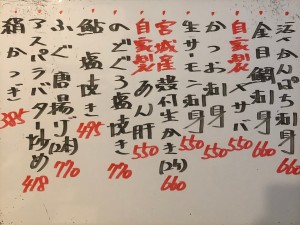 活〆かんぱち刺身 660
金目鯛刺身 660
自家製 〆サバ 550
かつお刺身 550
生サーモン刺身 550
宮城産 殻付生かき(2ケ) 660
自家製 あん肝 550
のどぐろ塩焼き 770
鮎塩焼き 495
ふぐ唐揚げ 770
アスパラバター炒め 418
絹かつぎ 385